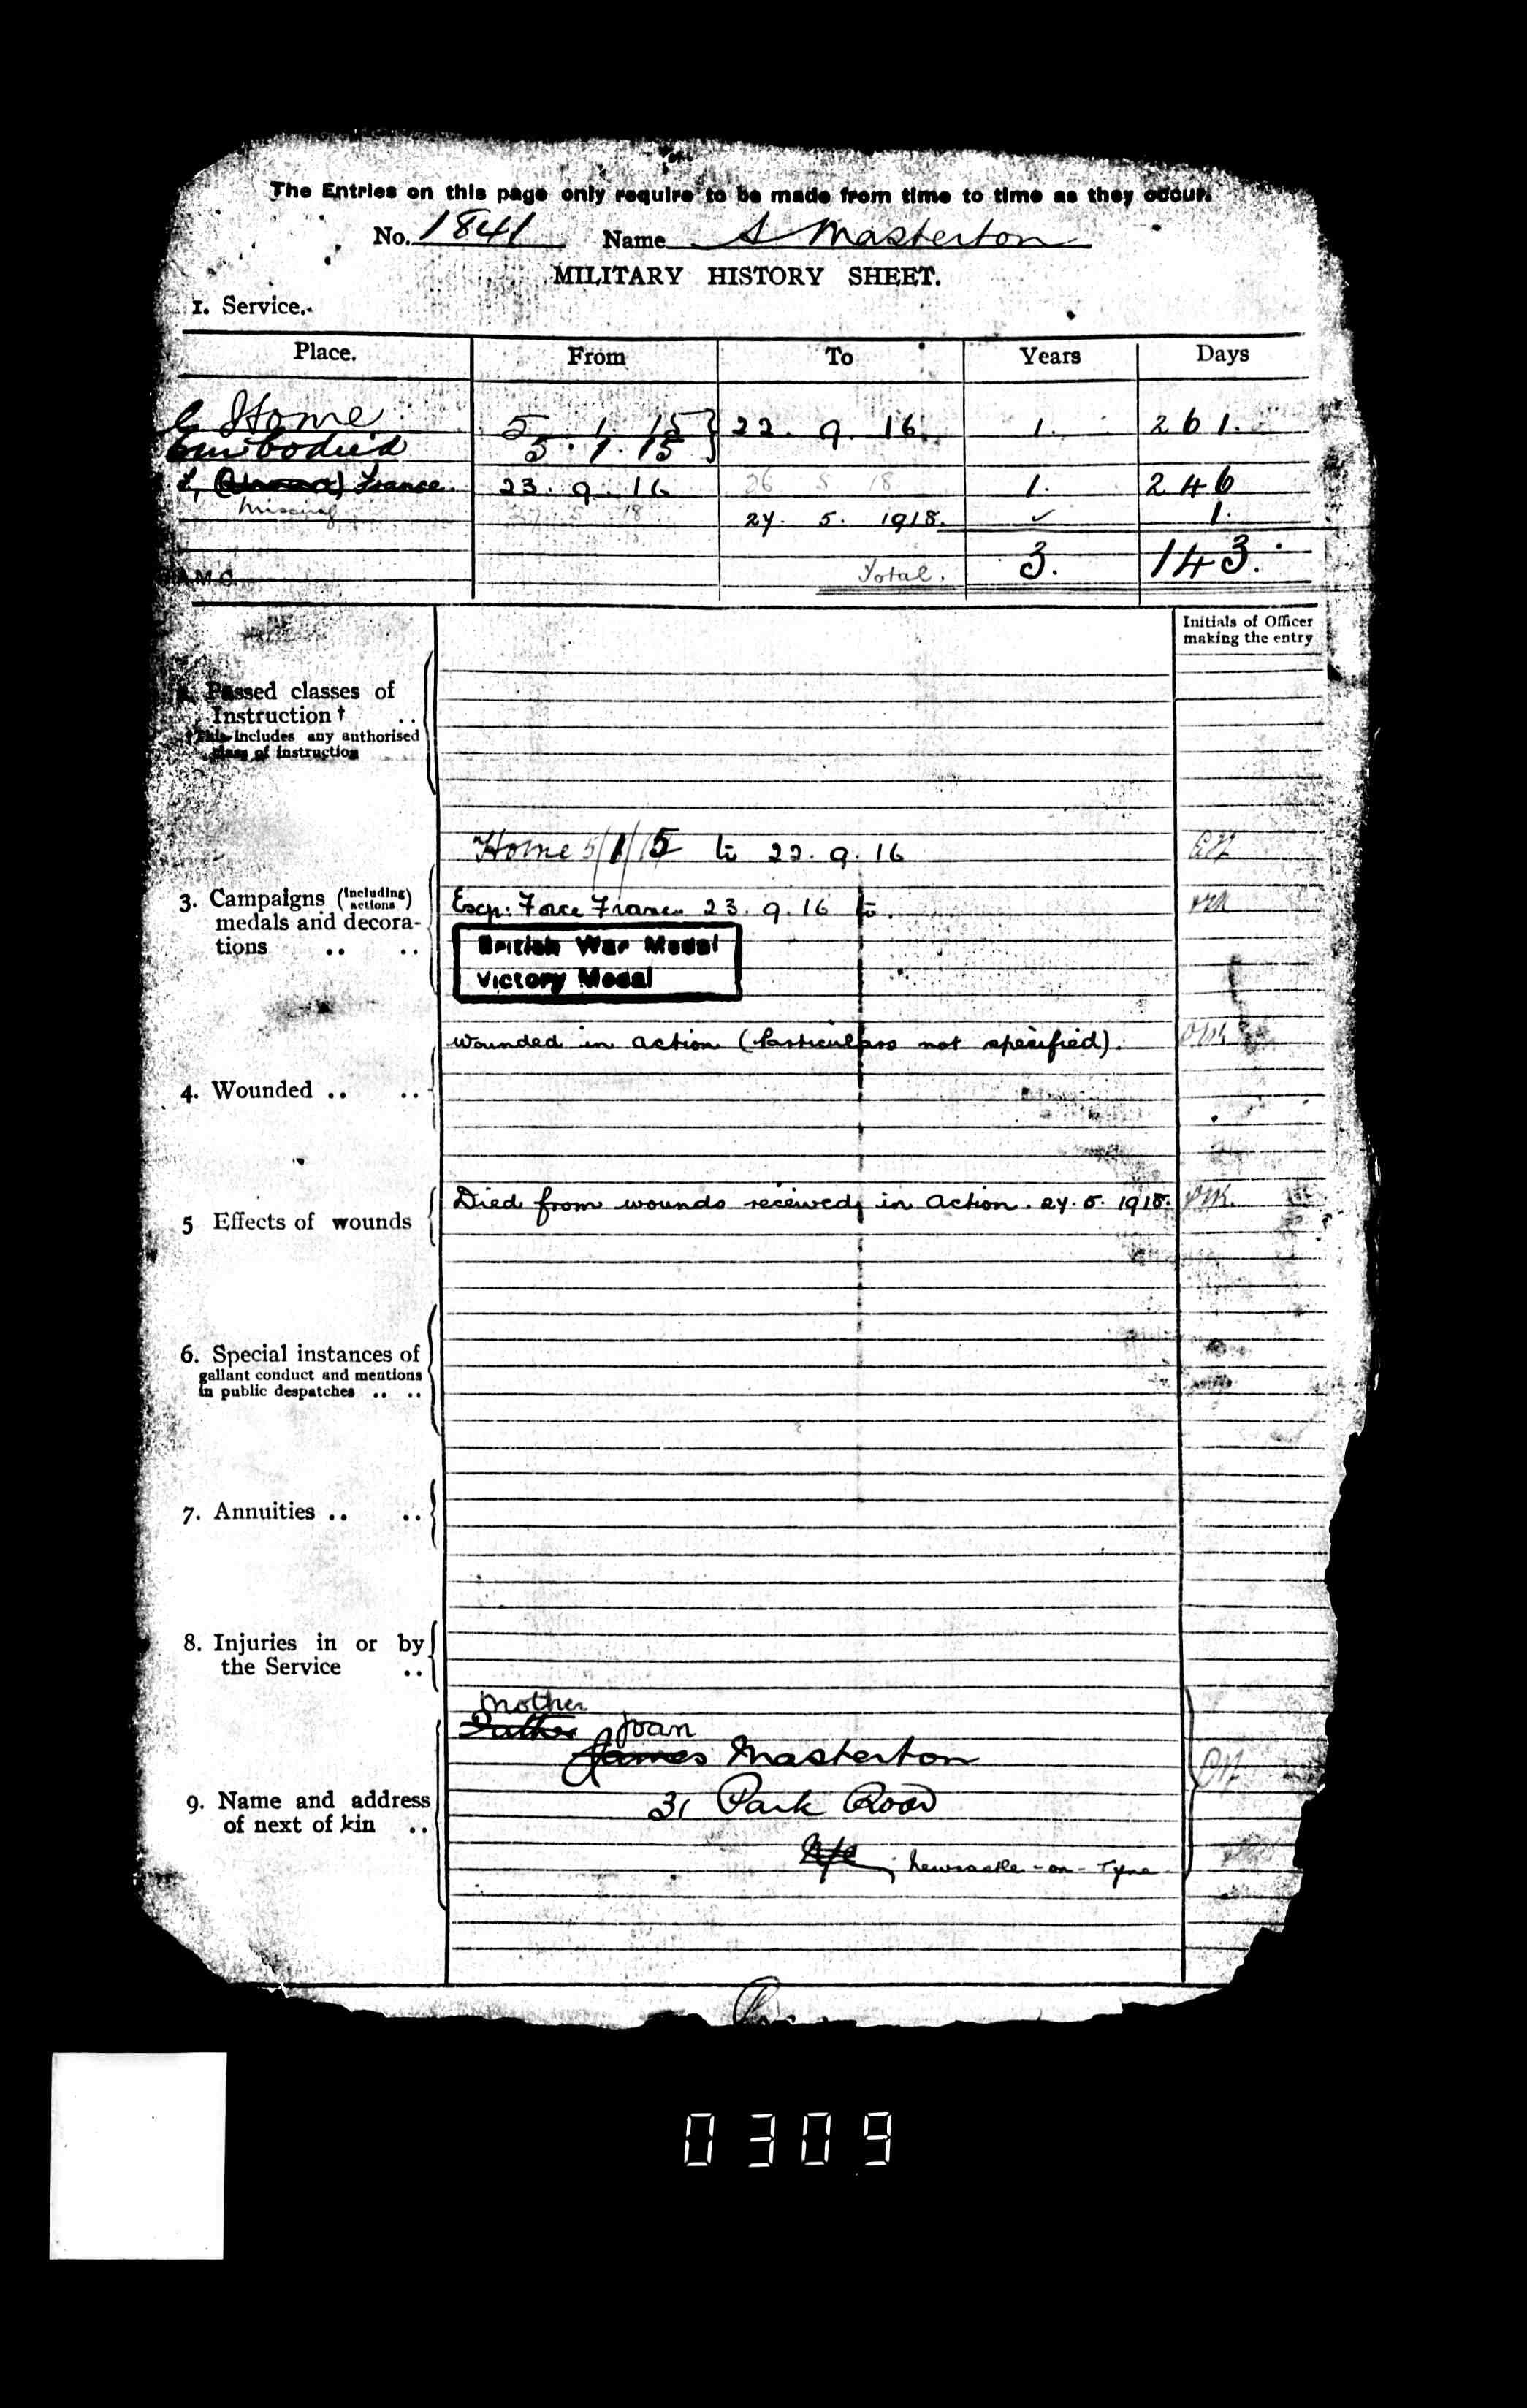 The Entries on this page only require to be made from time to time as they occur.
No. 1841 Name S Masterton
MILITARY HISTORY SHEET.
1. Service.
Place. From To Years Days
Home 5 . 1 . 15 } 22 . 9 . 16 1. 261.
Embodied 5 . 1 . 15
France. 23 . 9 . 16 26 5 18 1. 246
Missing 27 5 18 27. 5. 1918. ✓ 1.
Total. 3. 143.
A.M.C.
Initials of Officer
making the entry
Passed classes of
Instruction † ..
† This includes any authorised
class of instruction
Home 5/1/15 to 22 . 9 . 16
3. Campaigns (including actions)
medals and decora-
tions .. ..
Exp. Force France 23 . 9 . 16 to
British War Medal
Victory Medal
Wounded in action (Particulars not specified).
4. Wounded .. ..
Died from wounds received in action . 27. 5. 1918.
5 Effects of wounds
6. Special instances of
gallant conduct and mentions
in public despatches .. ..
7. Annuities .. ..
8. Injuries in or by
the Service ..
Mother
Father Joan
James Masterton
31 Park Road
9. Name and address
of next of kin ..
N/C Newcastle-on-Tyne
0309